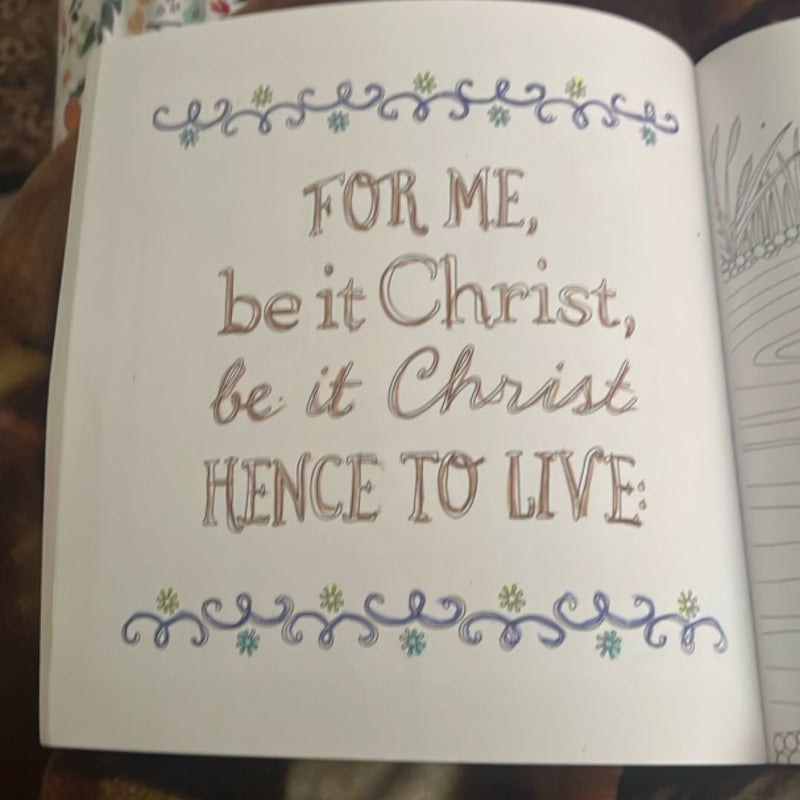 FOR ME,
be it Christ,
be it Christ
HENCE TO LIVE: